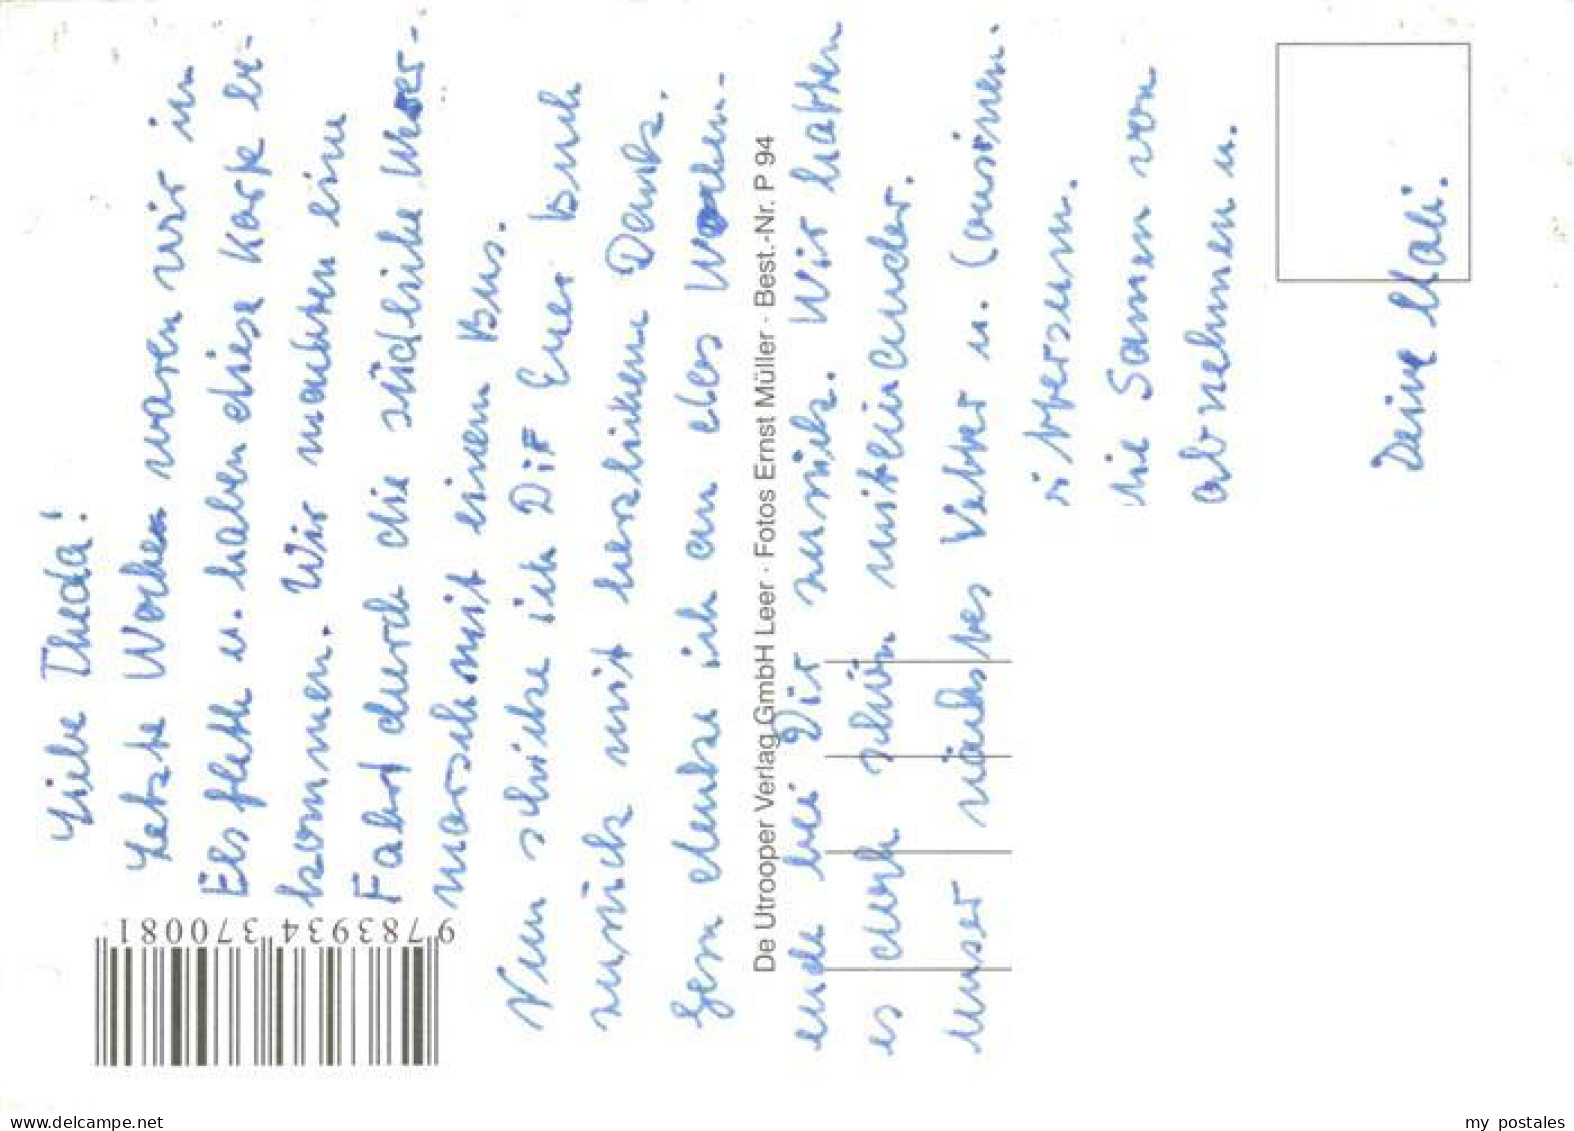 Liebe Theda!
Letzte Woche waren wir in
Elsfleth u. haben diese Karte be-
kommen. Wir machten eine
Fahrt durch die südliche Weser-
marsch mit einem Bus.
Nun schicke ich Dir Euer Buch
zurück mit herzlichem Dank.
Gern denke ich an das Wochen-
ende bei Dir zurück. Wir hatten
es doch schön miteinander.
Unser nächstes Vetter u. Cousinen-
abnehmen u.
Deine
De Utrooper Verlag GmbH Leer · Fotos Ernst Müller · Best.-Nr. P 94
9 783934 370081
delcampe.net
my postales